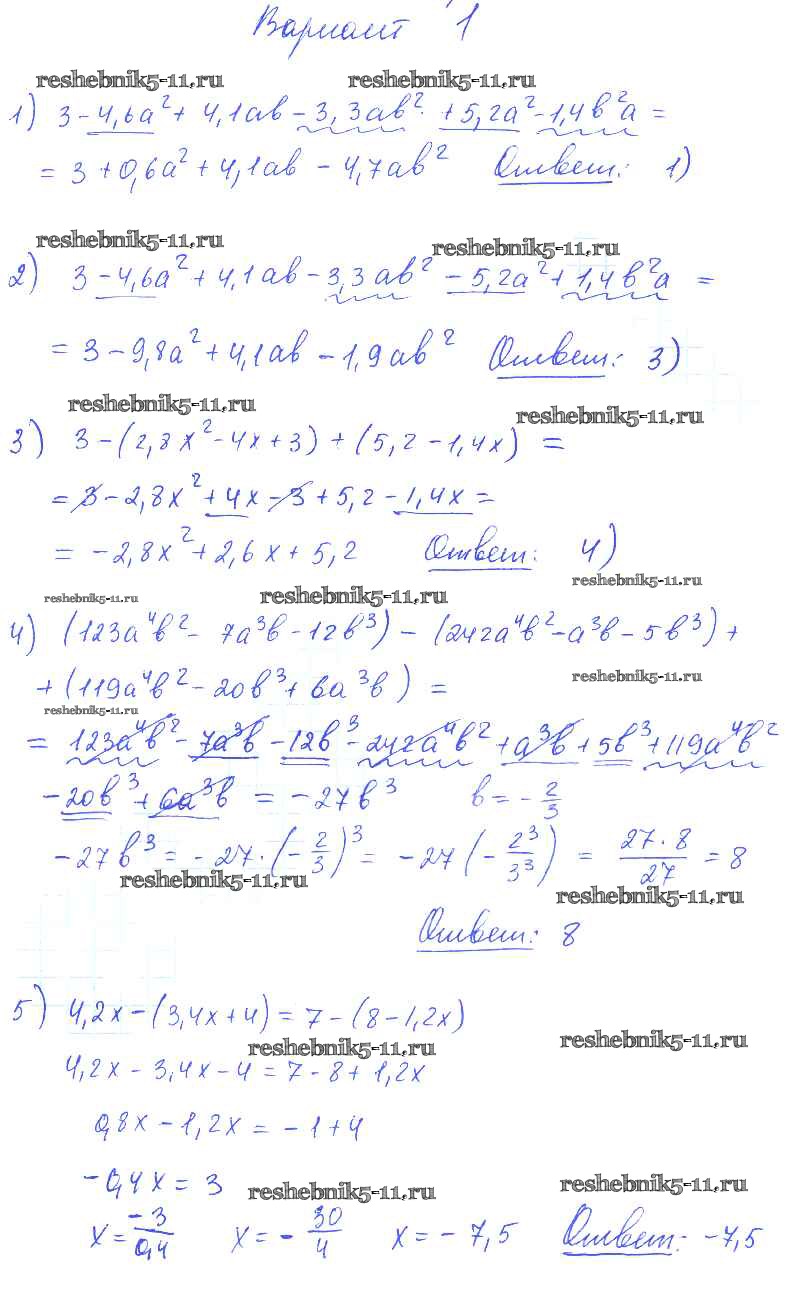 Вариант 1
reshebnik5-11.ru reshebnik5-11.ru
1) 3 - 4,6a² + 4,1ab - 3,3ab² + 5,2a² - 1,4b²a =
= 3 + 0,6a² + 4,1ab - 4,7ab² Ответ: 1)
reshebnik5-11.ru reshebnik5-11.ru
2) 3 - 4,6a² + 4,1ab - 3,3ab² - 5,2a² + 1,4b²a =
= 3 - 9,8a² + 4,1ab - 1,9ab² Ответ: 3)
reshebnik5-11.ru reshebnik5-11.ru
3) 3 - (2,8x² - 4x + 3) + (5,2 - 1,4x) =
= 3 - 2,8x² + 4x - 3 + 5,2 - 1,4x =
= -2,8x² + 2,6x + 5,2 Ответ: 4)
reshebnik5-11.ru
reshebnik5-11.ru reshebnik5-11.ru
4) (123a⁴b² - 7a³b - 12b³) - (242a⁴b² - a³b - 5b³) +
reshebnik5-11.ru
+ (119a⁴b² - 20b³ + 6a³b) =
reshebnik5-11.ru
= 123a⁴b² - 7a³b - 12b³ - 242a⁴b² + a³b + 5b³ + 119a⁴b²
- 20b³ + 6a³b = -27b³ b = -2/3
-27b³ = -27·(-2/3)³ = -27(-2³/3³) = 27·8/27 = 8
reshebnik5-11.ru reshebnik5-11.ru
Ответ: 8
5) 4,2x - (3,4x + 4) = 7 - (8 - 1,2x)
reshebnik5-11.ru reshebnik5-11.ru
4,2x - 3,4x - 4 = 7 - 8 + 1,2x
0,8x - 1,2x = -1 + 4
-0,4x = 3
reshebnik5-11.ru reshebnik5-11.ru
x = -3/0,4 x = -30/4 x = -7,5 Ответ: -7,5